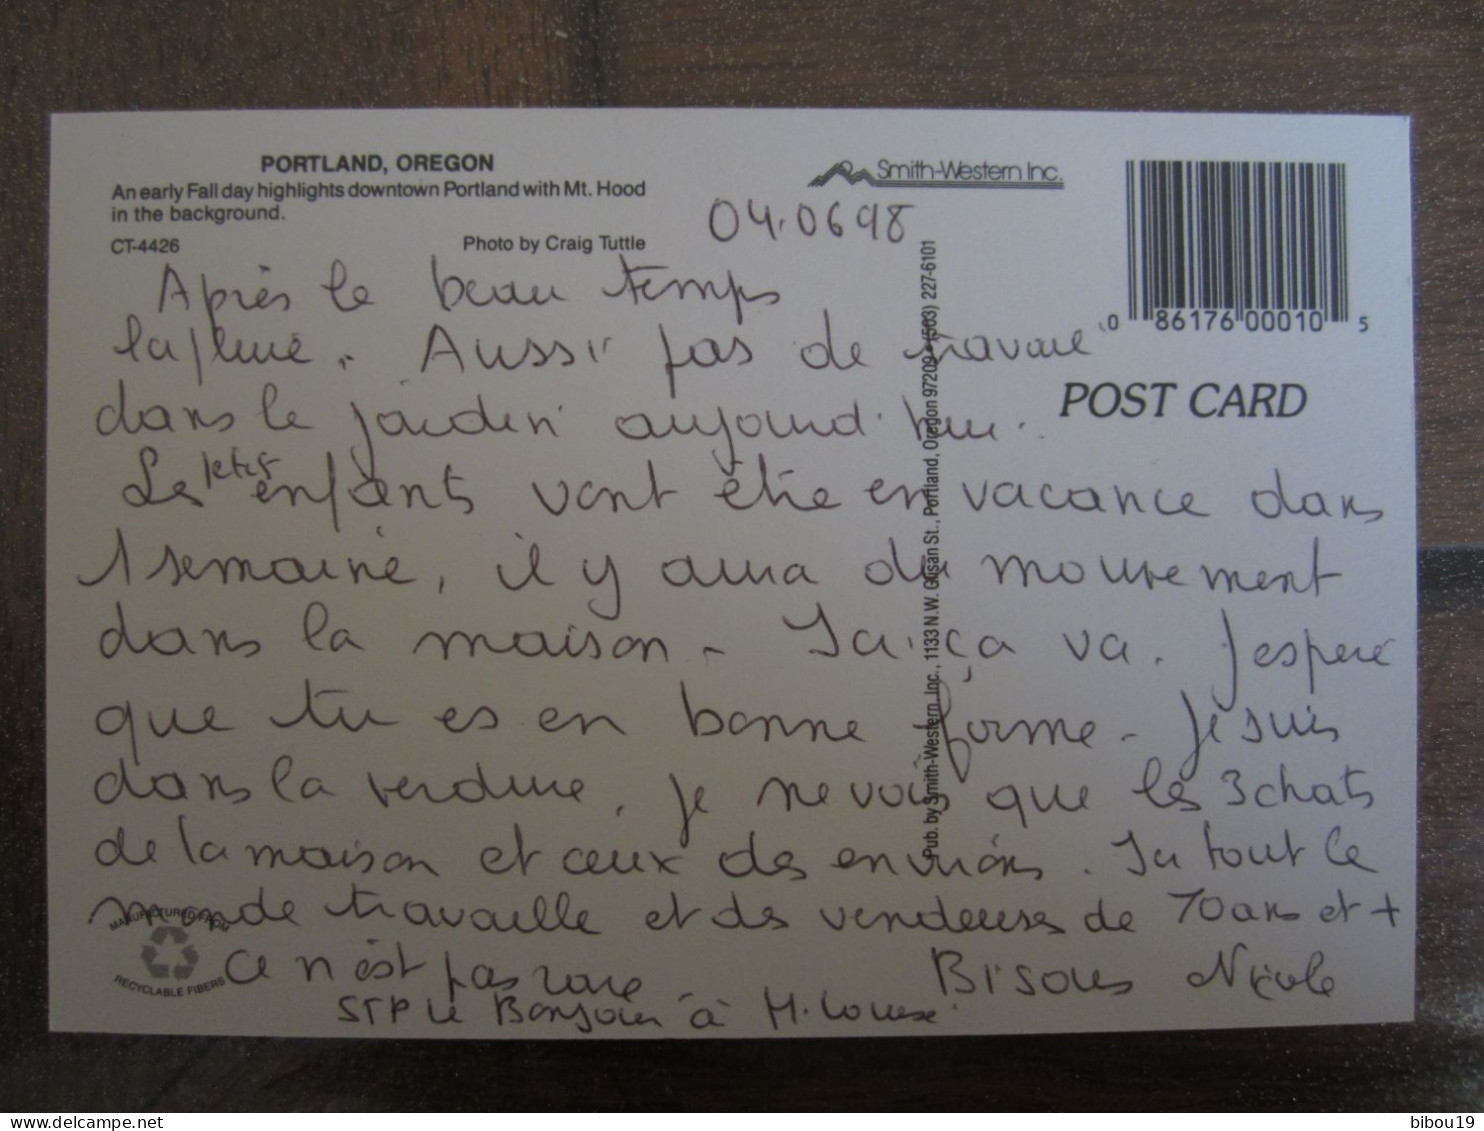 PORTLAND, OREGON
An early Fall day highlights downtown Portland with Mt. Hood
in the background.
CT-4426
Photo by Craig Tuttle
Smith-Western Inc.
04.06 98
0 86176 00010 5
POST CARD
Pub. by Smith-Western, Inc., 1133 N.W. Glisan St., Portland, Oregon 97209 • (503) 227-6101
Après le beau temps
la pluie. Aussi pas de travail
dans le jardin aujourd'hui.
Les petits enfants vont être en vacance dans
1 semaine, il y aura du mouvement
dans la maison - Ici ça va. J'espère
que tu es en bonne forme - Je suis
dans la verdure, je ne vois que les 3 chats
de la maison et ceux des environs. Ici tout le
monde travaille et des vendeuses de 70 ans et +
ce n'est pas rare Bisous Nicole
STP le Bonjour à M. Louise.
MANUFACTURED FROM
RECYCLABLE FIBERS
bibou19